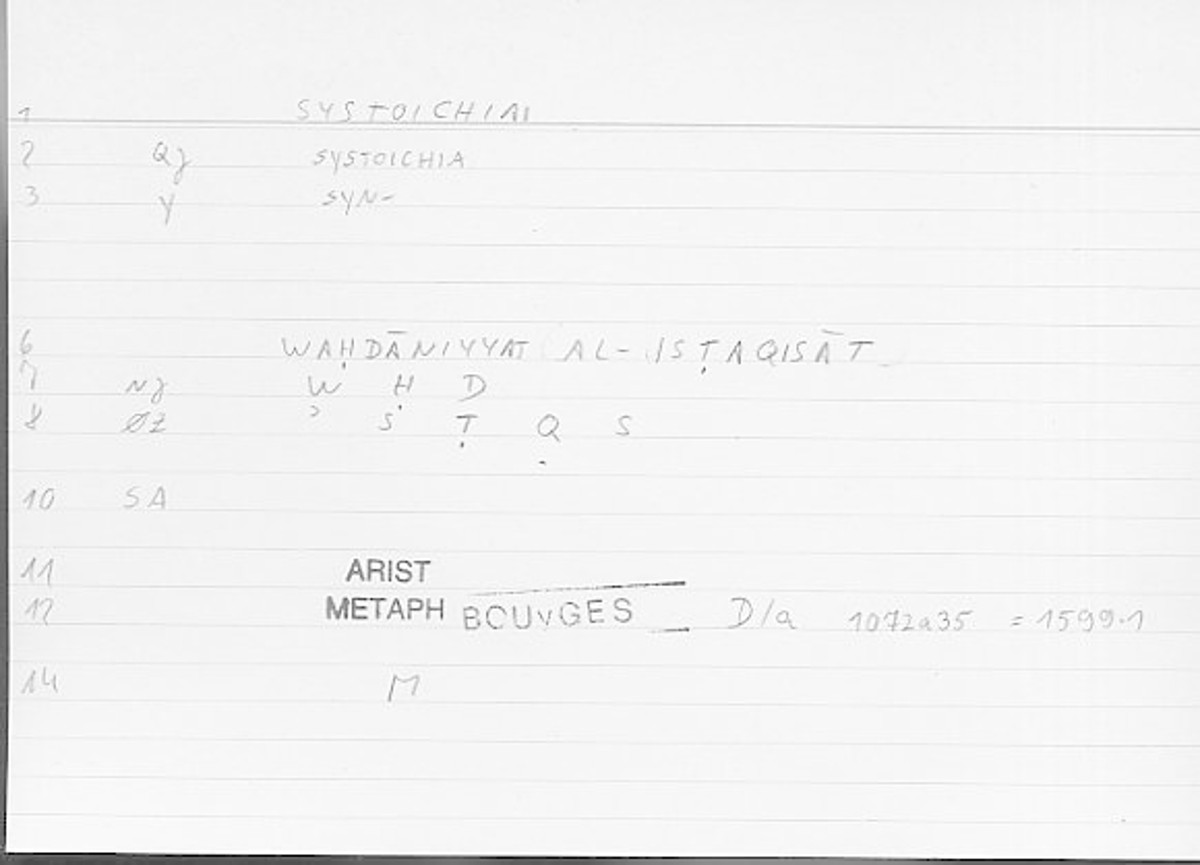 1 SYSTOICHIAI
2 Qz SYSTOICHIA
3 Y SYN-
6 WAḤDĀNIYYAT AL-ISṬAQISĀT
7 NZ W Ḥ D
8 ØZ ʾ S Ṭ Q S
10 SA
11 ARIST
12 METAPH BOUYGES D/a 1072a35 = 1599.1
14 M